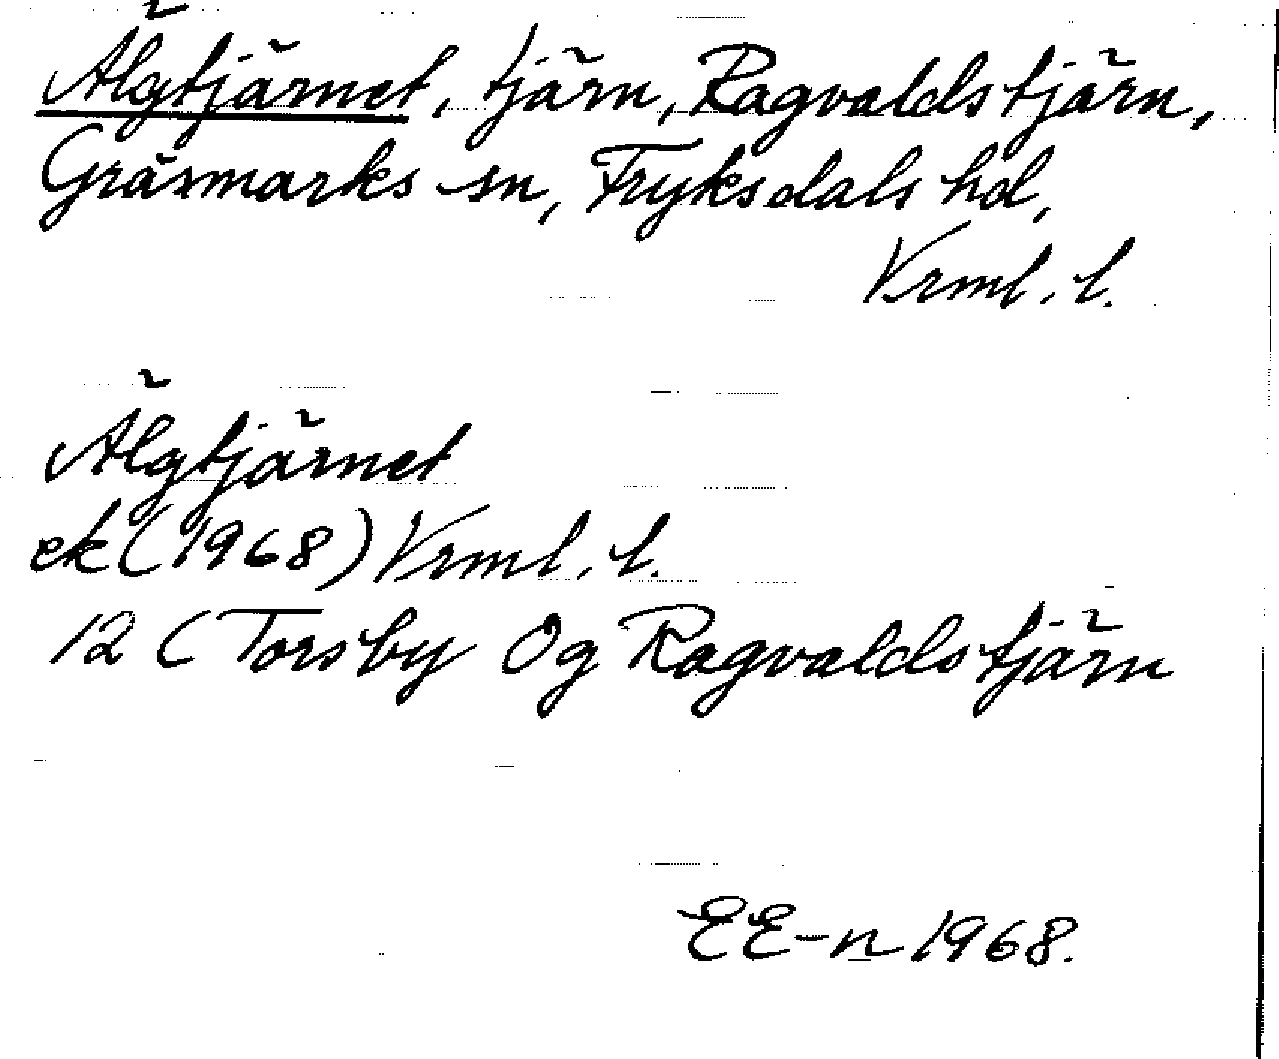 Älgtjärnet, tjärn, Ragvaldstjärn,
Gräsmarks sn, Fryksdals hd,
Vrml. l.
Älgtjärnet
ek (1968) Vrml. l.
12 (Torsby Og Ragvaldstjärn
EE-n 1968.